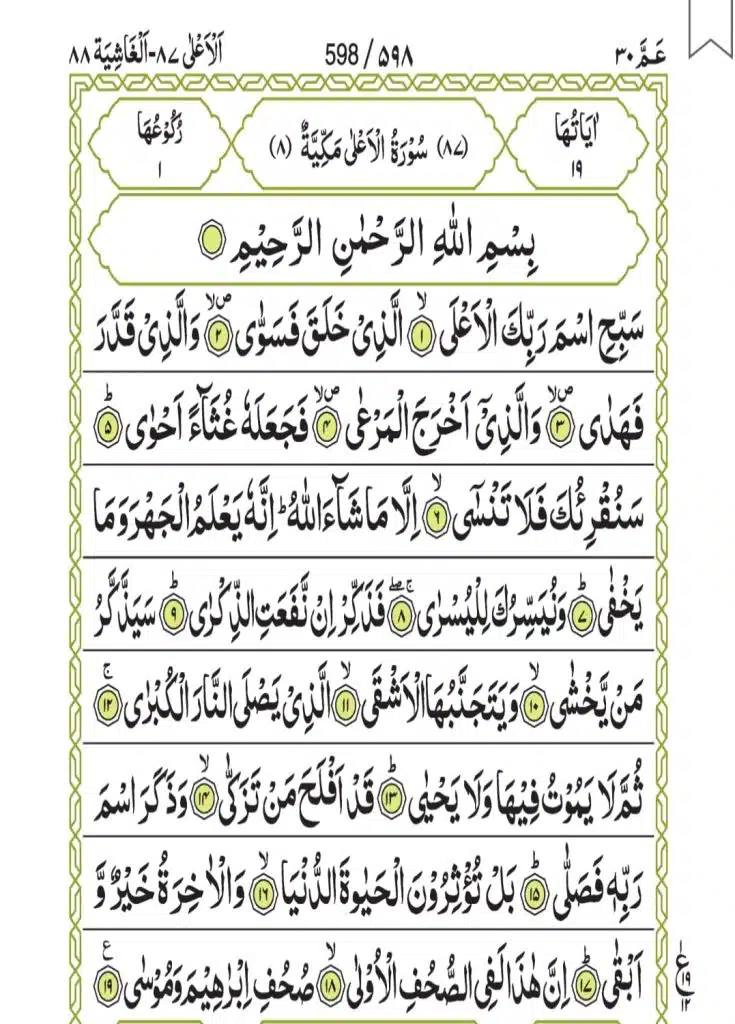 عَمَّ ٣٠ ۵۹۸ / 598 اَلْاَعْلٰى ٨٧-اَلْغَاشِيَة ٨٨
اٰيَاتُهَا ١٩ (٨٧) سُوْرَةُ الْاَعْلٰى مَكِّيَّةٌ (٨) رُكُوْعُهَا ١
بِسْمِ اللّٰهِ الرَّحْمٰنِ الرَّحِيْمِ
سَبِّحِ اسْمَ رَبِّكَ الْاَعْلَى ۙ﴿١﴾ الَّذِىْ خَلَقَ فَسَوّٰى ۪ۙ﴿٢﴾ وَالَّذِىْ قَدَّرَ
فَهَدٰى ۪ۙ﴿٣﴾ وَالَّذِىْۤ اَخْرَجَ الْمَرْعٰى ۪ۙ﴿۴﴾ فَجَعَلَهٗ غُثَآءً اَحْوٰى ؕ﴿۵﴾
سَنُقْرِئُكَ فَلَا تَنْسٰٓى ۙ﴿۶﴾ اِلَّا مَا شَآءَ اللّٰهُ ؕ اِنَّهٗ يَعْلَمُ الْجَهْرَ وَمَا
يَخْفٰى ؕ﴿٧﴾ وَنُيَسِّرُكَ لِلْيُسْرٰى ۖۚ﴿٨﴾ فَذَكِّرْ اِنْ نَّفَعَتِ الذِّكْرٰى ؕ﴿٩﴾ سَيَذَّكَّرُ
مَنْ يَّخْشٰى ۙ﴿١٠﴾ وَيَتَجَنَّبُهَا الْاَشْقَى ۙ﴿١١﴾ الَّذِىْ يَصْلَى النَّارَ الْكُبْرٰى ۚ﴿١٢﴾
ثُمَّ لَا يَمُوْتُ فِيْهَا وَلَا يَحْيٰى ؕ﴿١٣﴾ قَدْ اَفْلَحَ مَنْ تَزَكّٰى ۙ﴿١۴﴾ وَذَكَرَ اسْمَ
رَبِّهٖ فَصَلّٰى ؕ﴿١۵﴾ بَلْ تُؤْثِرُوْنَ الْحَيٰوةَ الدُّنْيَا ۙ﴿١۶﴾ وَالْاٰخِرَةُ خَيْرٌ وَّ
اَبْقٰى ؕ﴿١٧﴾ اِنَّ هٰذَا لَفِى الصُّحُفِ الْاُوْلٰى ۙ﴿١٨﴾ صُحُفِ اِبْرٰهِيْمَ وَمُوْسٰى ﴿١٩﴾ ع
ع ١٩ ١٢